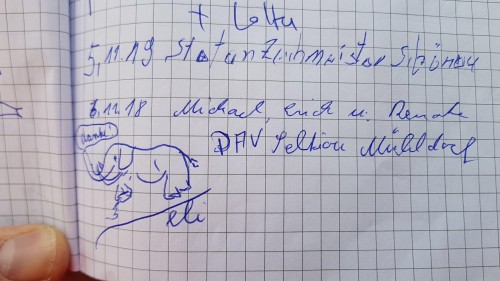 + Lotta
5.11.19
6.11.18 Michael, Erich u. Renate
DAV Sektion Mühldorf
Danke!
eli